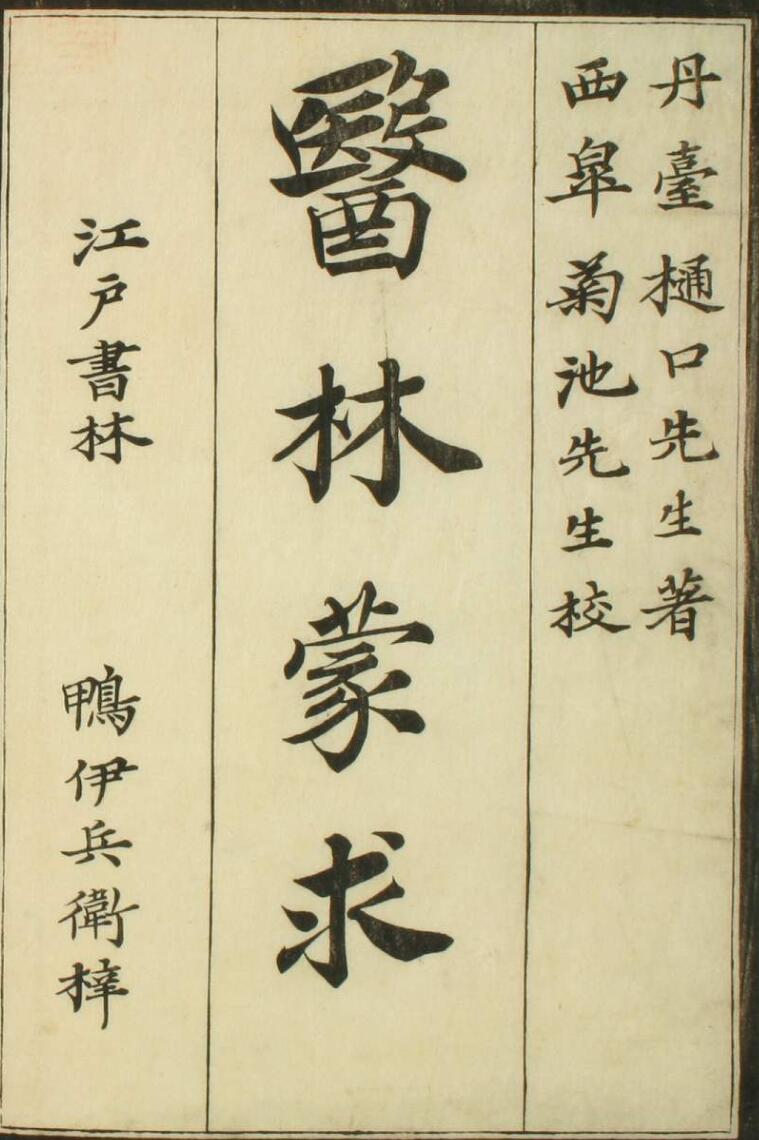 丹臺樋口先生著
西皐菊池先生校
醫林蒙求
江戸書林 鴨伊兵衛梓